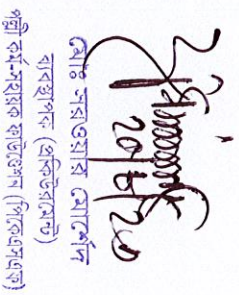 ২০/৮/২০
মোঃ সরওয়ার মোর্শেদ
ব্যবস্থাপক (প্রকিউরমেন্ট)
পল্লী কর্ম-সহায়ক ফাউন্ডেশন (পিকেএসএফ)